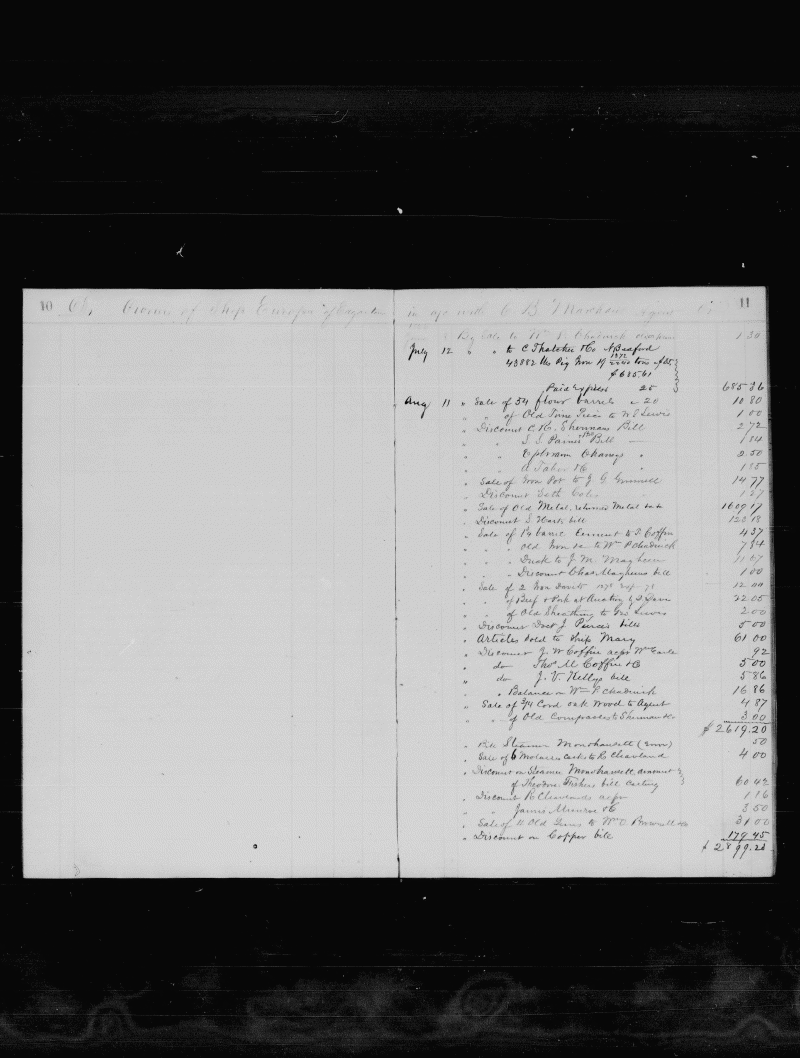 10 Owners of Ship Europa of Edgartown
in a/c with C B Marchant Agent 11
By Sale to Wm P. Chadwick 1 30
July 12 " " to C Thatcher & Co N Bedford
43882 lbs Pig Iron 19 1322/2240 tons @ 35
$ 685.61
Paid Express 25 685 36
Aug 11 " Sale of 54 flour barrels @ 20 10 80
" " of Old to W S Lewis 1 00
" Discount C. H. Shermans Bill 2 72
" " S. S. Bill 1 84
" " Ephraim Chaneys " 2 50
" " A Taber & Co " 1 85
" Sale of Iron Pot to J G 14 77
" Discount Seth 1 27
" Sale of Old Metal, returned Metal &c 1609 17
" Discount S Harts bill 120 18
" Sale of 1¼ barrel Cement to S. Coffin 4 37
" " " Old Iron &c to Wm P Chadwick 7 84
" " " Duck to J. M. Mayhew
" " Discount Chas Mayhews bill 1 00
" Sale of 2 Iron Davits 12 00
" " of Beef & Pork at Auction by S. 22 05
" " of Old Sheathing to Geo Lewis 2 00
" Discount Doct J. Pierces bills 5 00
" Articles sold to Ship Mary 61 00
" Discount J. W Coffin acpr Wm Earle 92
" do Thos M Coffin & Co 5 00
" do J. V. Kellys bill 5 86
" " Balance on Wm P. Chadwick 16 86
" Sale of 3/4 Cord oak Wood to Agent 4 87
" " of Old Compasses to Sherman & Co 3.00
$ 2619.20
" Bill Steamer Monohansett (Error) 50
" Sale of 6 Molasses Casks to R Cleaveland 4 00
" Discount on Steamer Monohansett account &
of Theodore Fishers bill carting 60 42
" Discount R Cleavelands acpr 1.16
" " James Munroe & Co 3.50
" Sale of 11 Old to Wm O. Brownell &c 31 00
" Discount on Copper bill 179 45
$ 2899.23